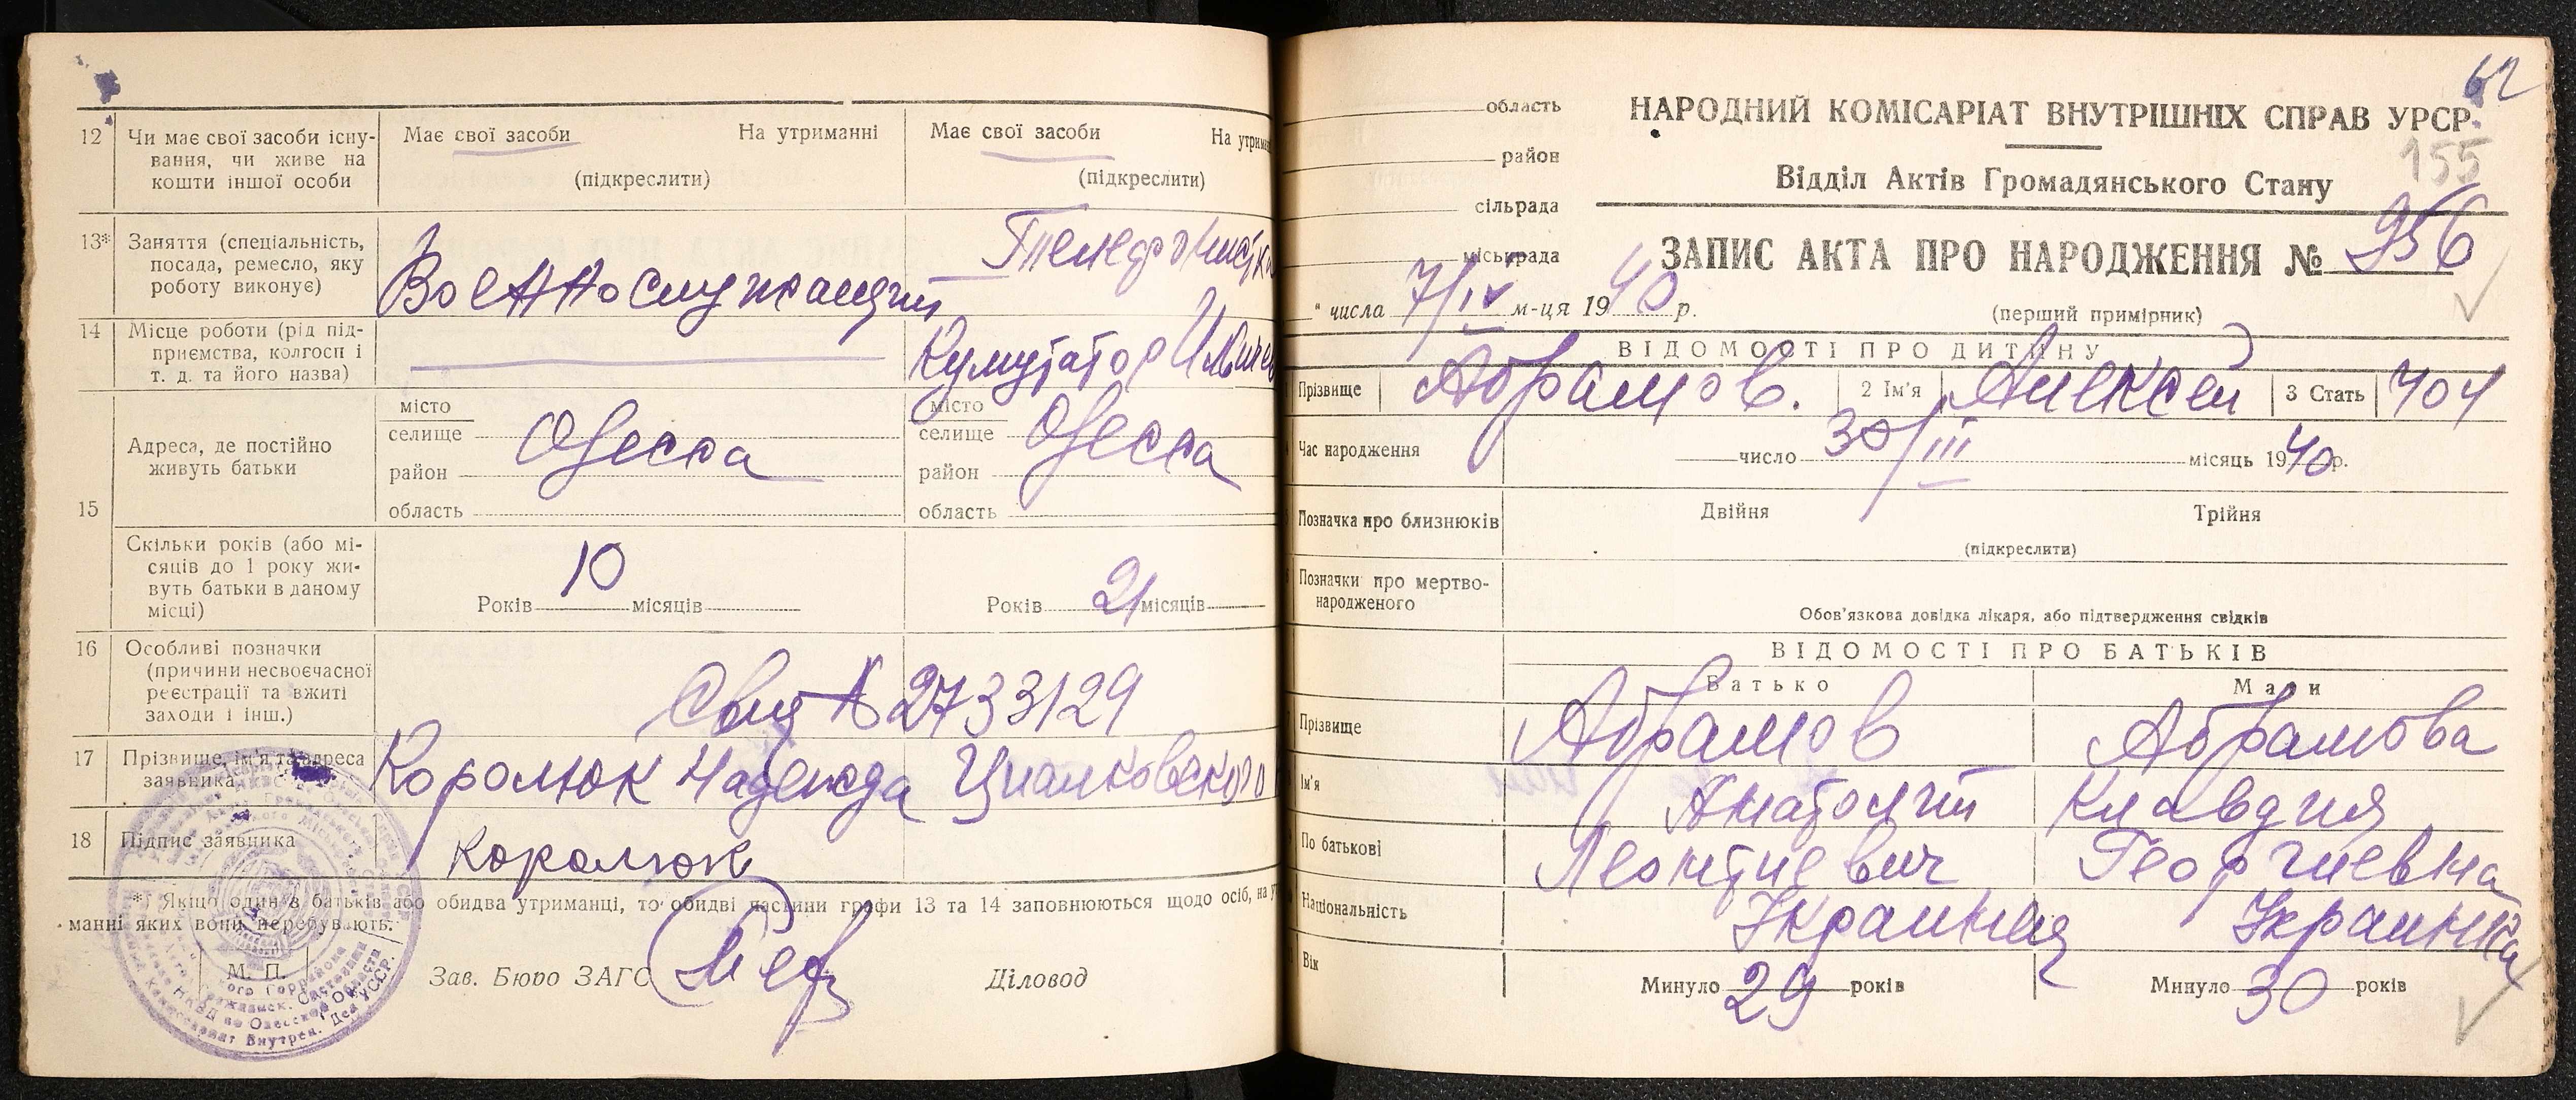 12 Чи має свої засоби існу-
вання, чи живе на
кошти іншої особи
Має свої засоби На утриманні
(підкреслити)
Має свої засоби
(підкреслити)
13* Заняття (спеціальність,
посада, ремесло, яку
роботу виконує)
Военнослужащий
14 Місце роботи (рід під-
приємства, колгосп і
т. д. та його назва)
15
Адреса, де постійно
живуть батьки
місто
селище
район
область
Одесса
місто
селище
район
область
Одесса
Скільки років (або мі-
сяців до 1 року жи-
вуть батьки в даному
місці)
Років 10 місяців
Років 21 місяців
16 Особливі позначки
(причини несвоєчасної
реєстрації та вжиті
заходи і інш.)
2733129
17 Прізвище, ім'я та адреса
заявника
Королюк Надежда
18 Підпис заявника
Королюк
*) Якщо один з батьків або обидва утриманці, то обидві частини графи 13 та 14 заповнюються щодо осіб, на
манні яких вони перебувають.
М. П.
Зав. Бюро ЗАГС
Діловод
62
область
район
сільрада
міськрада
НАРОДНИЙ КОМІСАРІАТ ВНУТРІШНІХ СПРАВ УРСР.
155
Відділ Актів Громадянського Стану
ЗАПИС АКТА ПРО НАРОДЖЕННЯ № 956
" числа 7/IV м-ця 1940 р.
(перший примірник)
ВІДОМОСТІ ПРО ДИТИНУ
Прізвище Абрамов. 2 Ім'я Алексей 3 Стать
Час народження число 30/III місяць 1940 р.
Позначка про близнюків Двійня Трійня
(підкреслити)
Позначки про мертво-
народженого
Обов'язкова довідка лікаря, або підтвердження свідків
ВІДОМОСТІ ПРО БАТЬКІВ
Батько Мати
Прізвище Абрамов Абрамова
Ім'я Анатолий Клавдия
По батькові Леонтиевич Георгиевна
Національність Украинец Украинка
Вік Минуло 29 років Минуло 30 років